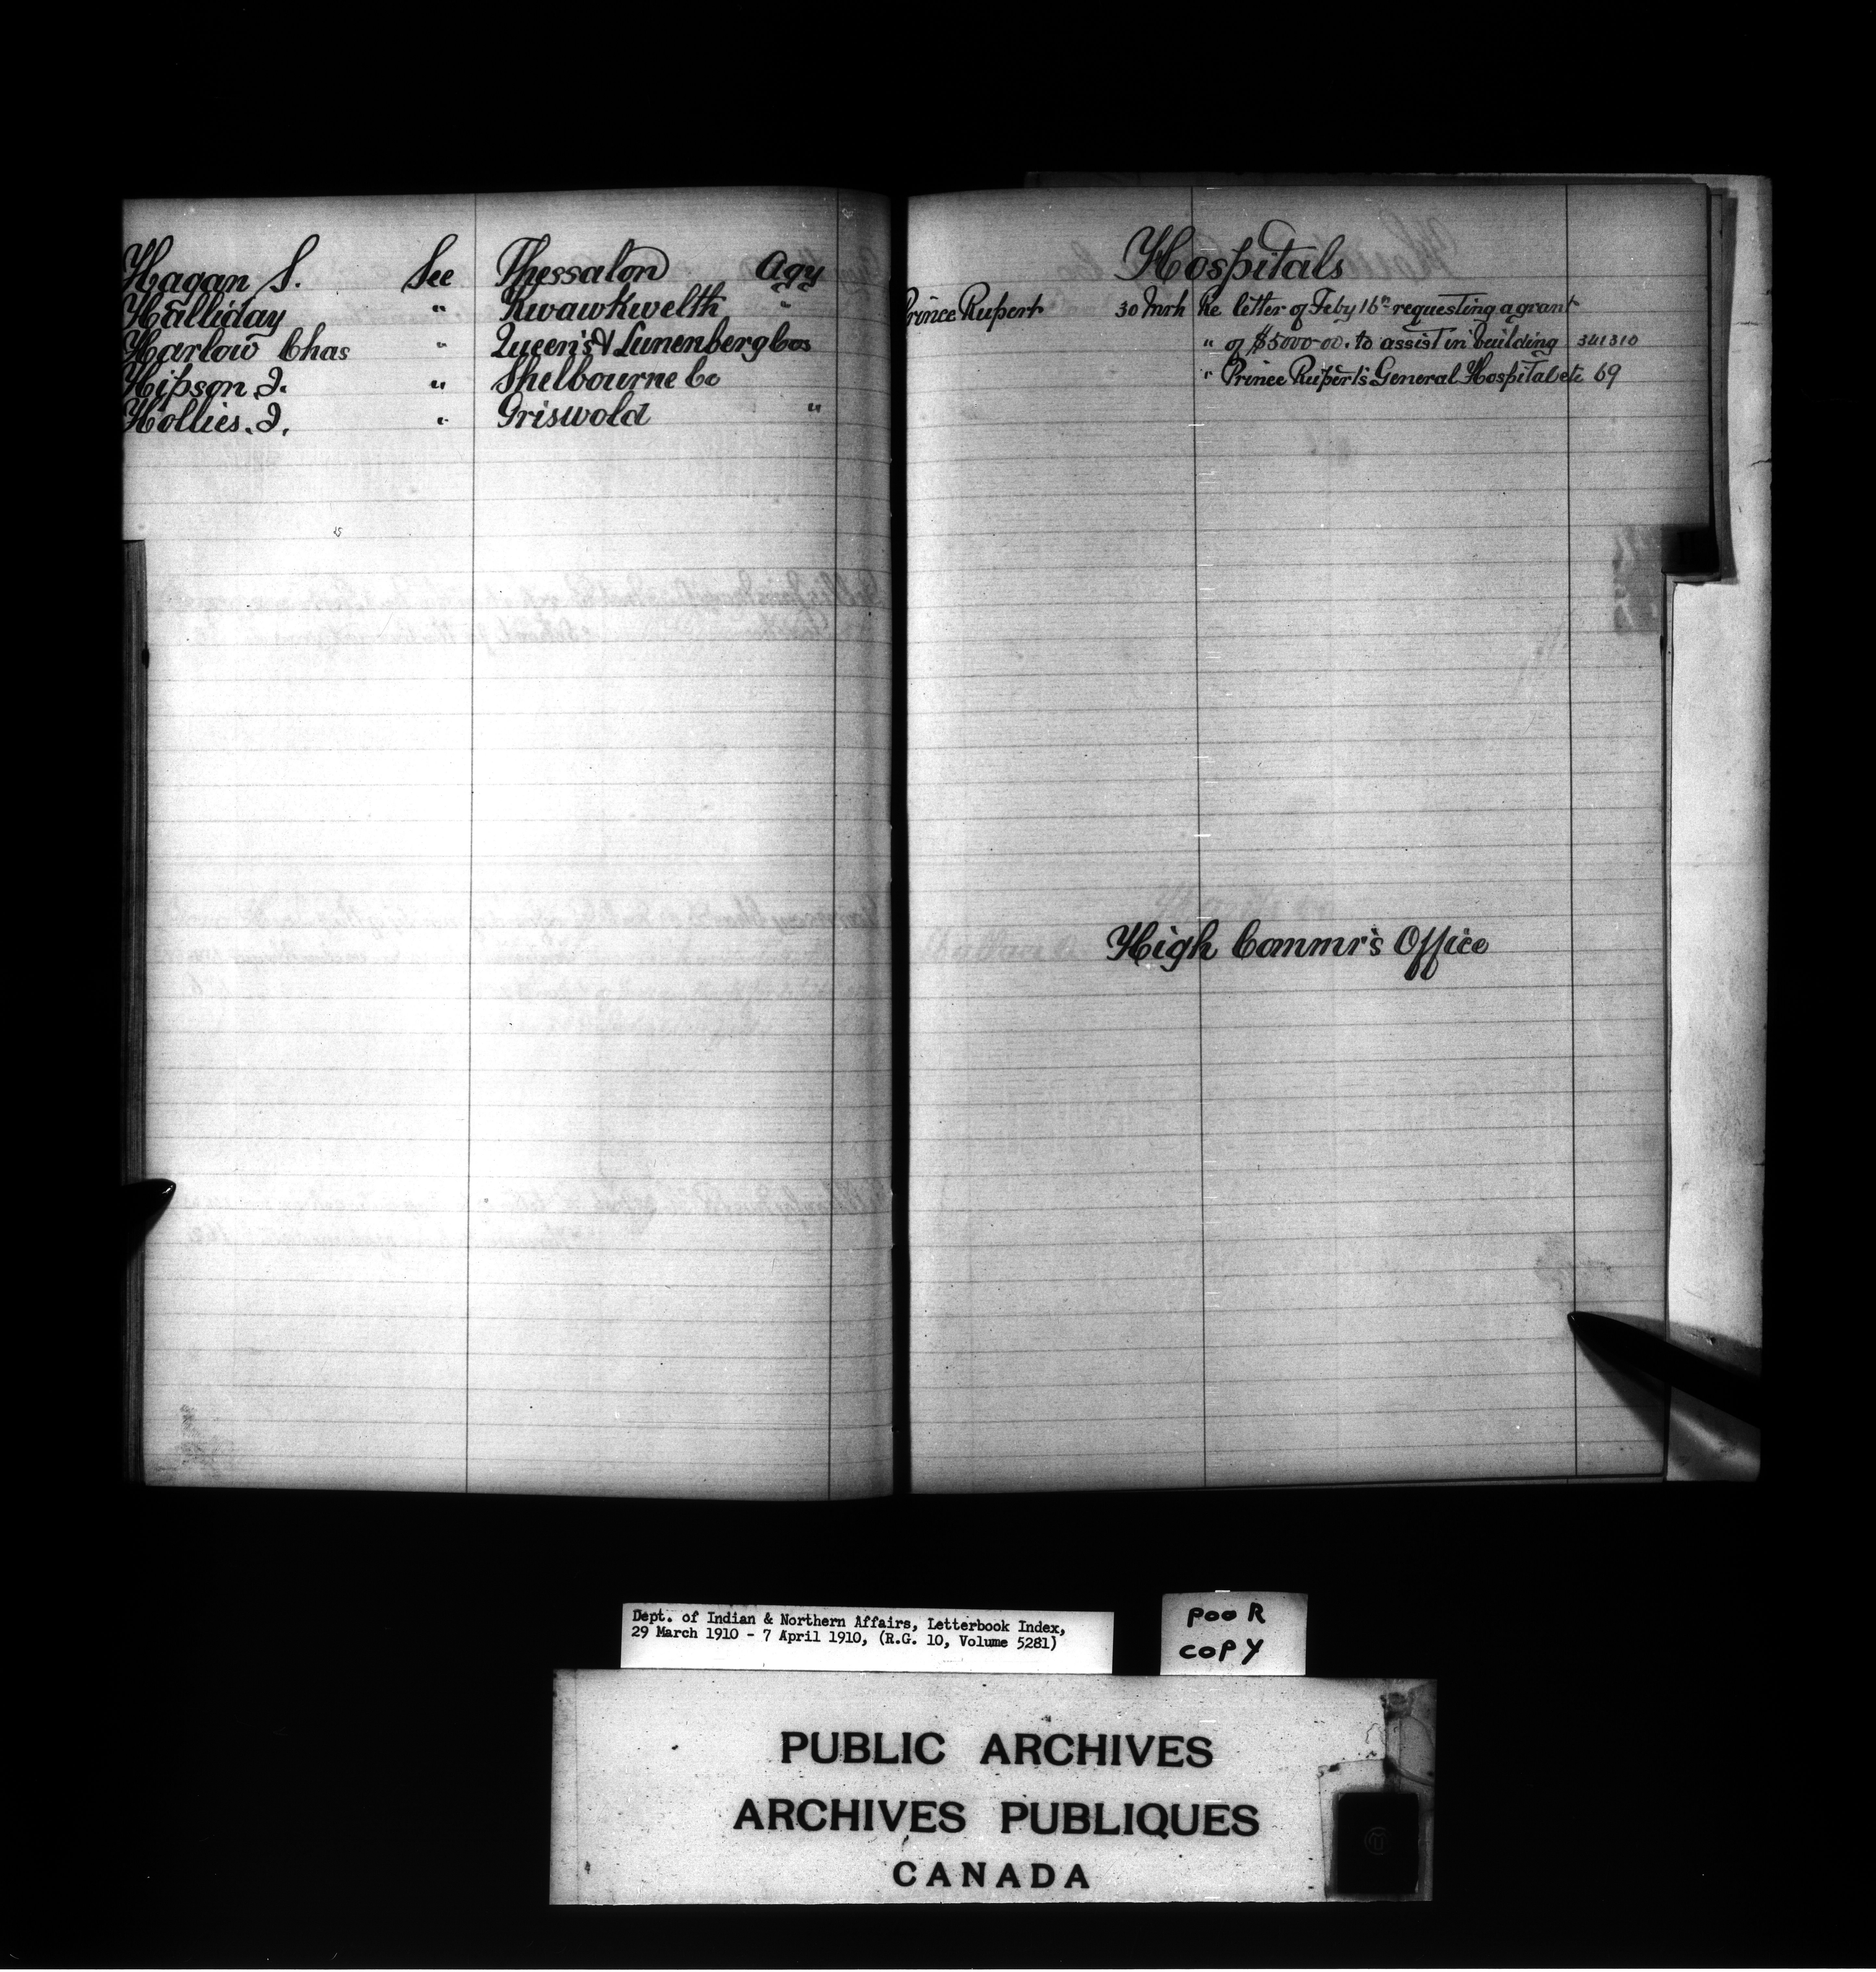 Hagan S. See Thessalon Agy
Halliday " Kwawkwelth "
Harlow Chas " Queen's & Lunenberg Cos
Hipson J. " Shelbourne Co
Hollies. J. " Griswold "
Hospitals
Prince Rupert 30 Mrh Re letter of Feby 16th requesting a grant
" of $5000-00. to assist in building 341310
" Prince Rupert's General Hospital etc 69
High Commr's Office
Dept. of Indian & Northern Affairs, Letterbook Index,
29 March 1910 - 7 April 1910, (R.G. 10, Volume 5281)
POOR
COPY
PUBLIC ARCHIVES
ARCHIVES PUBLIQUES
CANADA